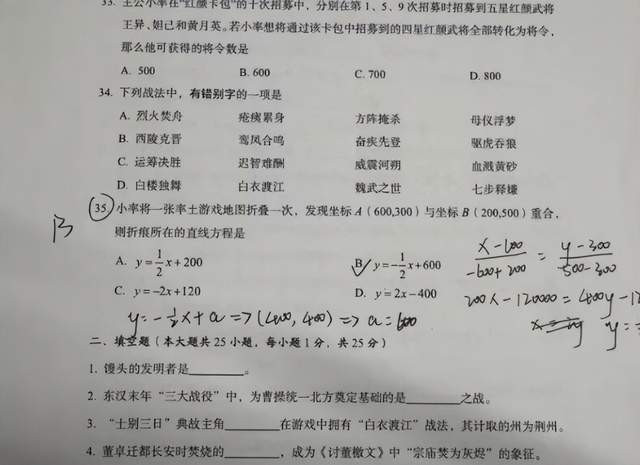 33. 主公小率在“红颜卡包”的十次招募中，分别在第 1、5、9 次招募时招募到五星红颜武将
王异、妲己和黄月英。若小率想将通过该卡包中招募到的四星红颜武将全部转化为将令，
那么他可获得的将令数是
A. 500 B. 600 C. 700 D. 800
34. 下列战法中，有错别字的一项是
A. 烈火焚舟 疮痍累身 方阵掩杀 母仪浮梦
B. 西陵克晋 鸾凤合鸣 奋疾先登 驱虎吞狼
C. 运筹决胜 迟智难酬 威震河朔 血溅黄砂
D. 白楼独舞 白衣渡江 魏武之世 七步释嫌
35. 小率将一张率土游戏地图折叠一次，发现坐标 A（600,300）与坐标 B（200,500）重合，
B
则折痕所在的直线方程是
A. y=1/2x+200 B. y=-1/2x+600
C. y=-2x+120 D. y=2x-400
x-600/-600+200 = y-300/500-300
200x-120000=400y-12
y=-1/2x+a=>(400,400)=>a=600
y=
二、填空题（本大题共 25 小题，每小题 1 分，共 25 分）
1. 馒头的发明者是______。
2. 东汉末年“三大战役”中，为曹操统一北方奠定基础的是______之战。
3. “士别三日”典故主角______在游戏中拥有“白衣渡江”战法，其计取的州为荆州。
4. 董卓迁都长安时焚烧的______，成为《讨董檄文》中“宗庙焚为灰烬”的象征。